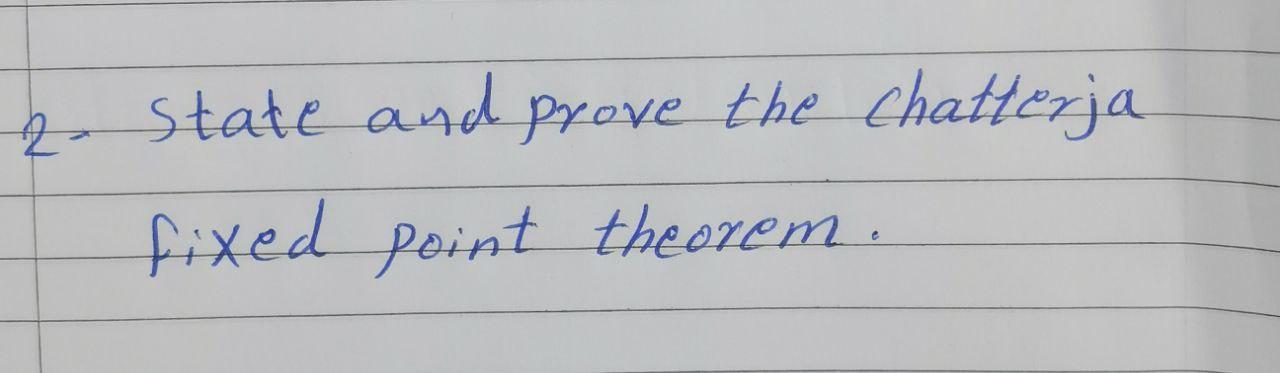 2- State and prove the Chatterja
fixed point theorem.